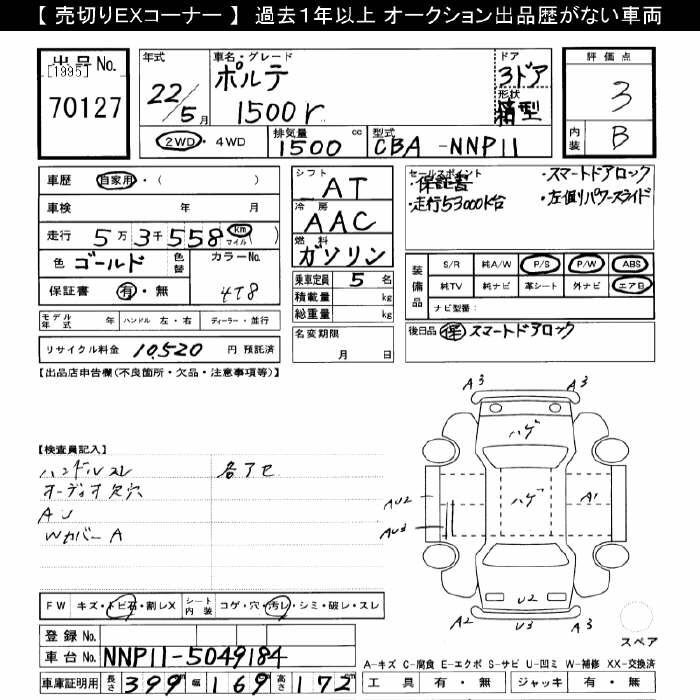 【 売切りEXコーナー 】 過去1年以上 オークション出品歴がない車両
出品No.
[1995]
70127
年式
22/5月
車名・グレード
ポルテ
1500r
ドア
3ドア
形状
箱型
2WD・4WD
排気量
1500cc
型式
CBA-NNP11
評価点
3
内装
B
車歴 自家用・( )
車検 年 月
走行 5万3千558 km マイル )
色 ゴールド 色替 カラーNo. 4T8
保証書 有・無
モデル年式 年 ハンドル 左・右 ディーラー・並行
リサイクル料金 10,520 円 預託済
シフト
AT
冷房
AAC
燃料
ガソリン
乗車定員 5 名
積載量 kg
総重量 kg
名変期限
月 日
セールスポイント
・保証書 ・スマートドアロック
・走行53000K台 ・左側リパワースライド
装備品
S/R 純A/W P/S P/W ABS
純TV 純ナビ 革シート 外ナビ エアB
ナビ型番:
後日品 保 スマートドアロック
【出品店申告欄(不良箇所・欠品・注意事項等)】
【検査員記入】
ハンドルスレ 各アセ
オーディオ欠穴
AU
WカバーA
A3 A3
ハゲ
ハゲ
A1
AU2
AU3
U2
A2 U3 A3
スペア
FW キズ・トビ石・割レX シート内装 コゲ・穴・汚レ・シミ・破レ・スレ
登録No.
車台No. NNP11-5049184
車庫証明用 長さ 399 幅 169 高さ 172
A-キズ C-腐食 E-エクボ S-サビ U-凹ミ W-補修 XX-交換済
工具 有・無 ジャッキ 有・無